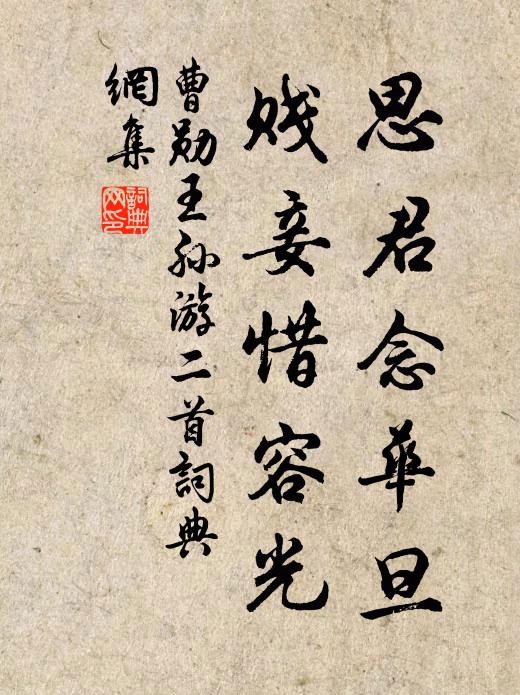 思君念華旦
贱妾惜容光
曹勋王孙游二首詞典
網集
詞典网印